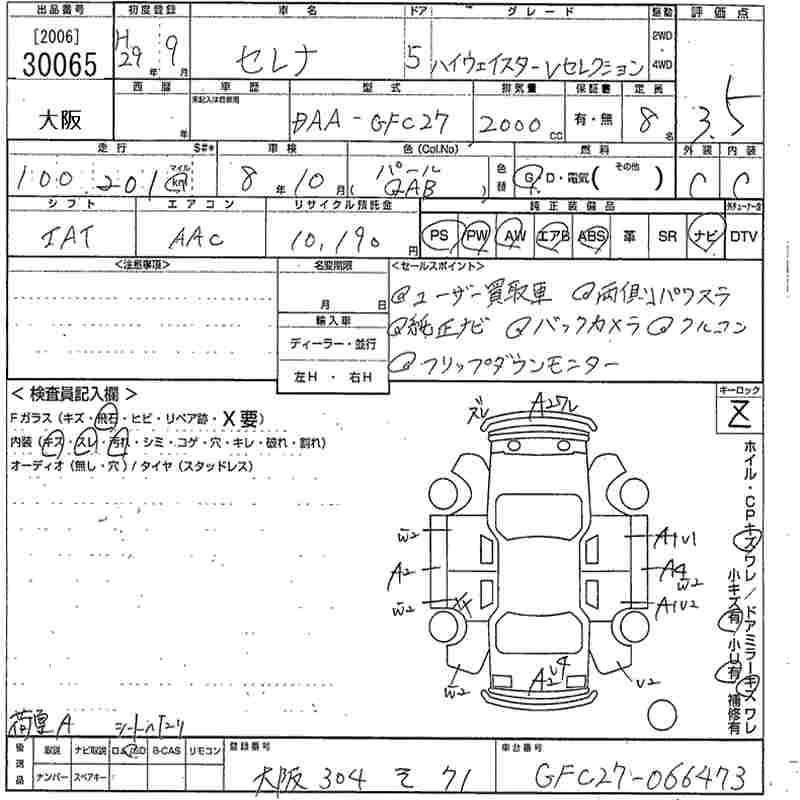 出品番号 初度登録 車名 ドア グレード 駆動 評価点
[2006] 30065 H29年 9月 セレナ 5 ハイウェイスター Vセレクション 2WD ・ 4WD 3.5
大阪 西暦 年 車歴 未記入は自家用 型式 DAA-GFC27 排気量 2000cc 保証書 有・無 定員 8名
走行 S#* 車検 色(Col.No) 色替 燃料 外装 内装
100,201 マイル km 8年 10月 パール (QAB) G・D・電気( その他 ) C C
シフト エアコン リサイクル預託金 純正装備品
IAT AAC 10,190円 PS PW AW エアB ABS 革 SR ナビ DTV
<注意事項> 名変期限 <セールスポイント>
月 日 @ユーザー買取車 @両側パワスラ
輸入車 @純正ナビ @バックカメラ @クルコン
ディーラー・並行
左H ・ 右H @フリップダウンモニター
<検査員記入欄> キーロック
Fガラス(キズ・飛石・ヒビ・リペア跡・X要) Z
内装(キズ・スレ・汚れ・シミ・コゲ・穴・キレ・破れ・割れ)
オーディオ(無し・穴)/タイヤ(スタッドレス)
ズレ A2ワレ
W2 A1U1
A2 A4 W2
W2 XX A1U2
W2 A2 U4 U2
ホイル・CPキズワレ/ドアミラーキズワレ
小キズ有 小U有 補修有
荷室A
後送品 取説 ナビ取説 ロム/SD B-CAS リモコン 登録番号 車台番号
ナンバー スペアキー 大阪 304 そ 71 GFC27-066473